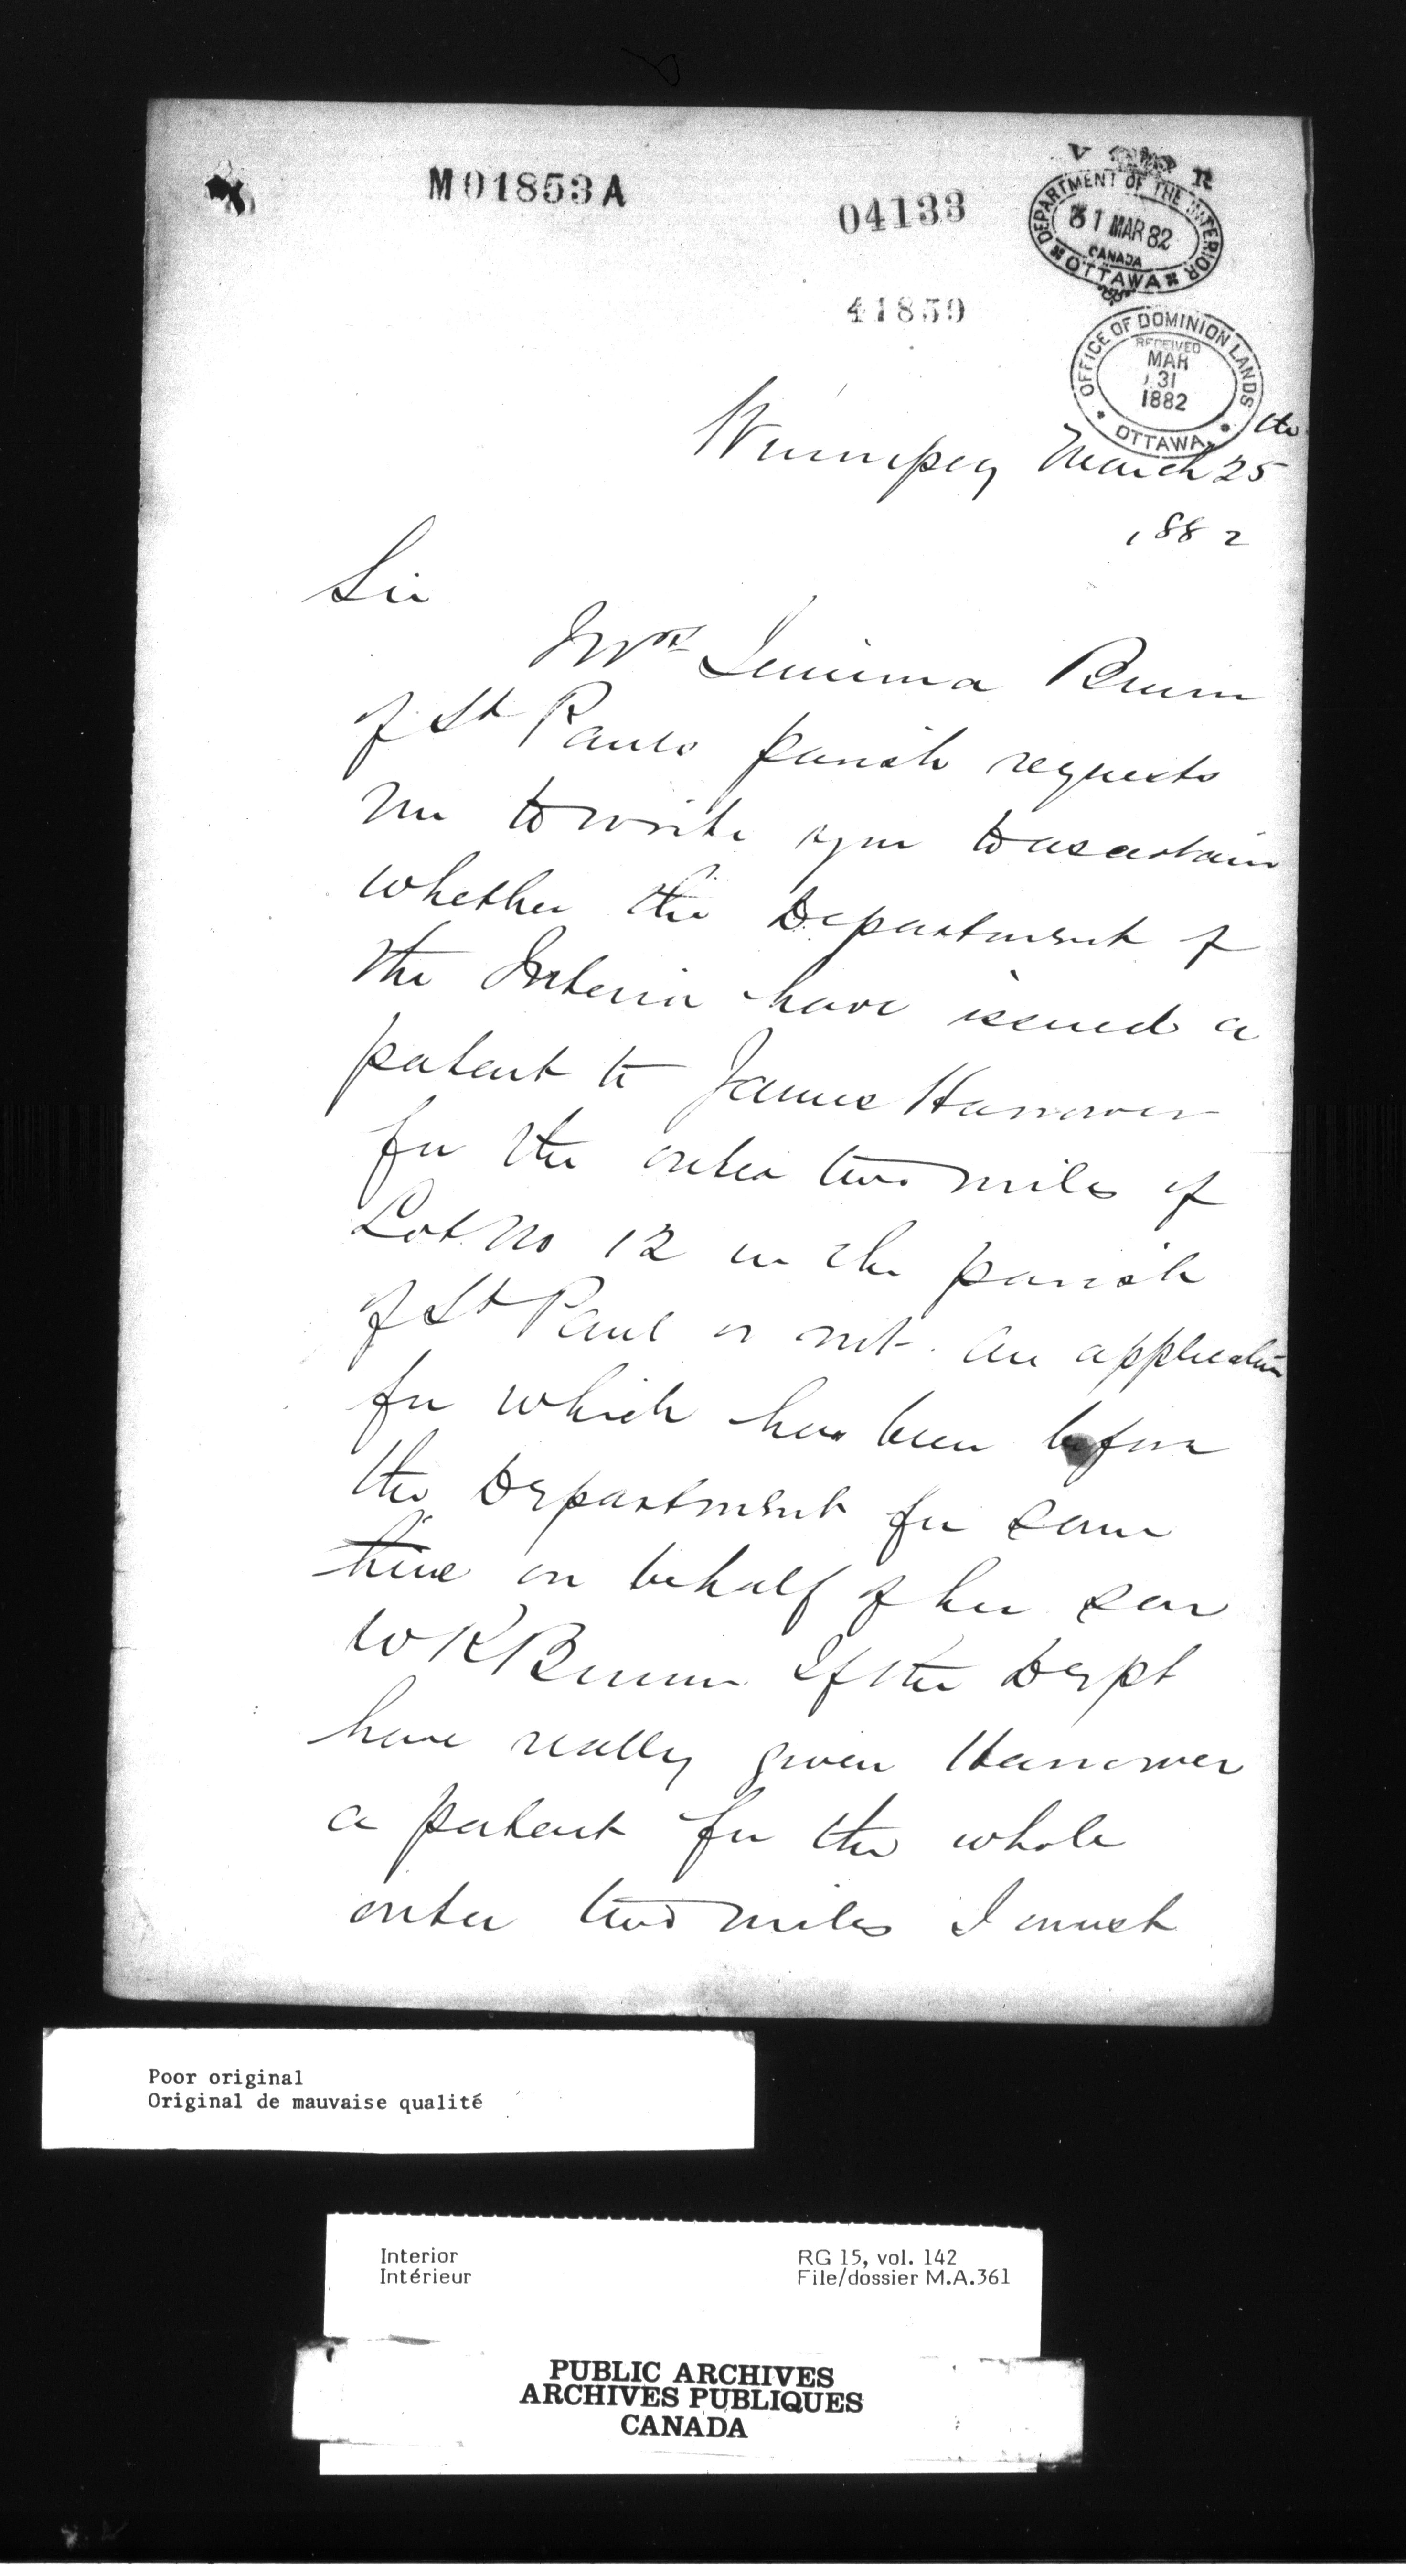 M01853A
04133
41859
V R
DEPARTMENT OF THE INTERIOR
31 MAR 82
CANADA
OTTAWA
OFFICE OF DOMINION LANDS
RECEIVED
MAR
31
1882
OTTAWA
Winnipeg March 25th
1882
Sir
Mrs Jemima Bunn
of St Pauls parish requests
me to write you to ascertain
whether the Department of
the Interior have issued a
patent to James Hanower
for the outer two miles of
Lot No 12 in the parish
of St Paul or not. An application
for which has been before
the Department for some
time on behalf of her son
W R Bunn If the Dept
have really given Hanower
a patent for the whole
outer two miles I must
Poor original
Original de mauvaise qualité
Interior
Intérieur
RG 15, vol. 142
File/dossier M.A.361
PUBLIC ARCHIVES
ARCHIVES PUBLIQUES
CANADA